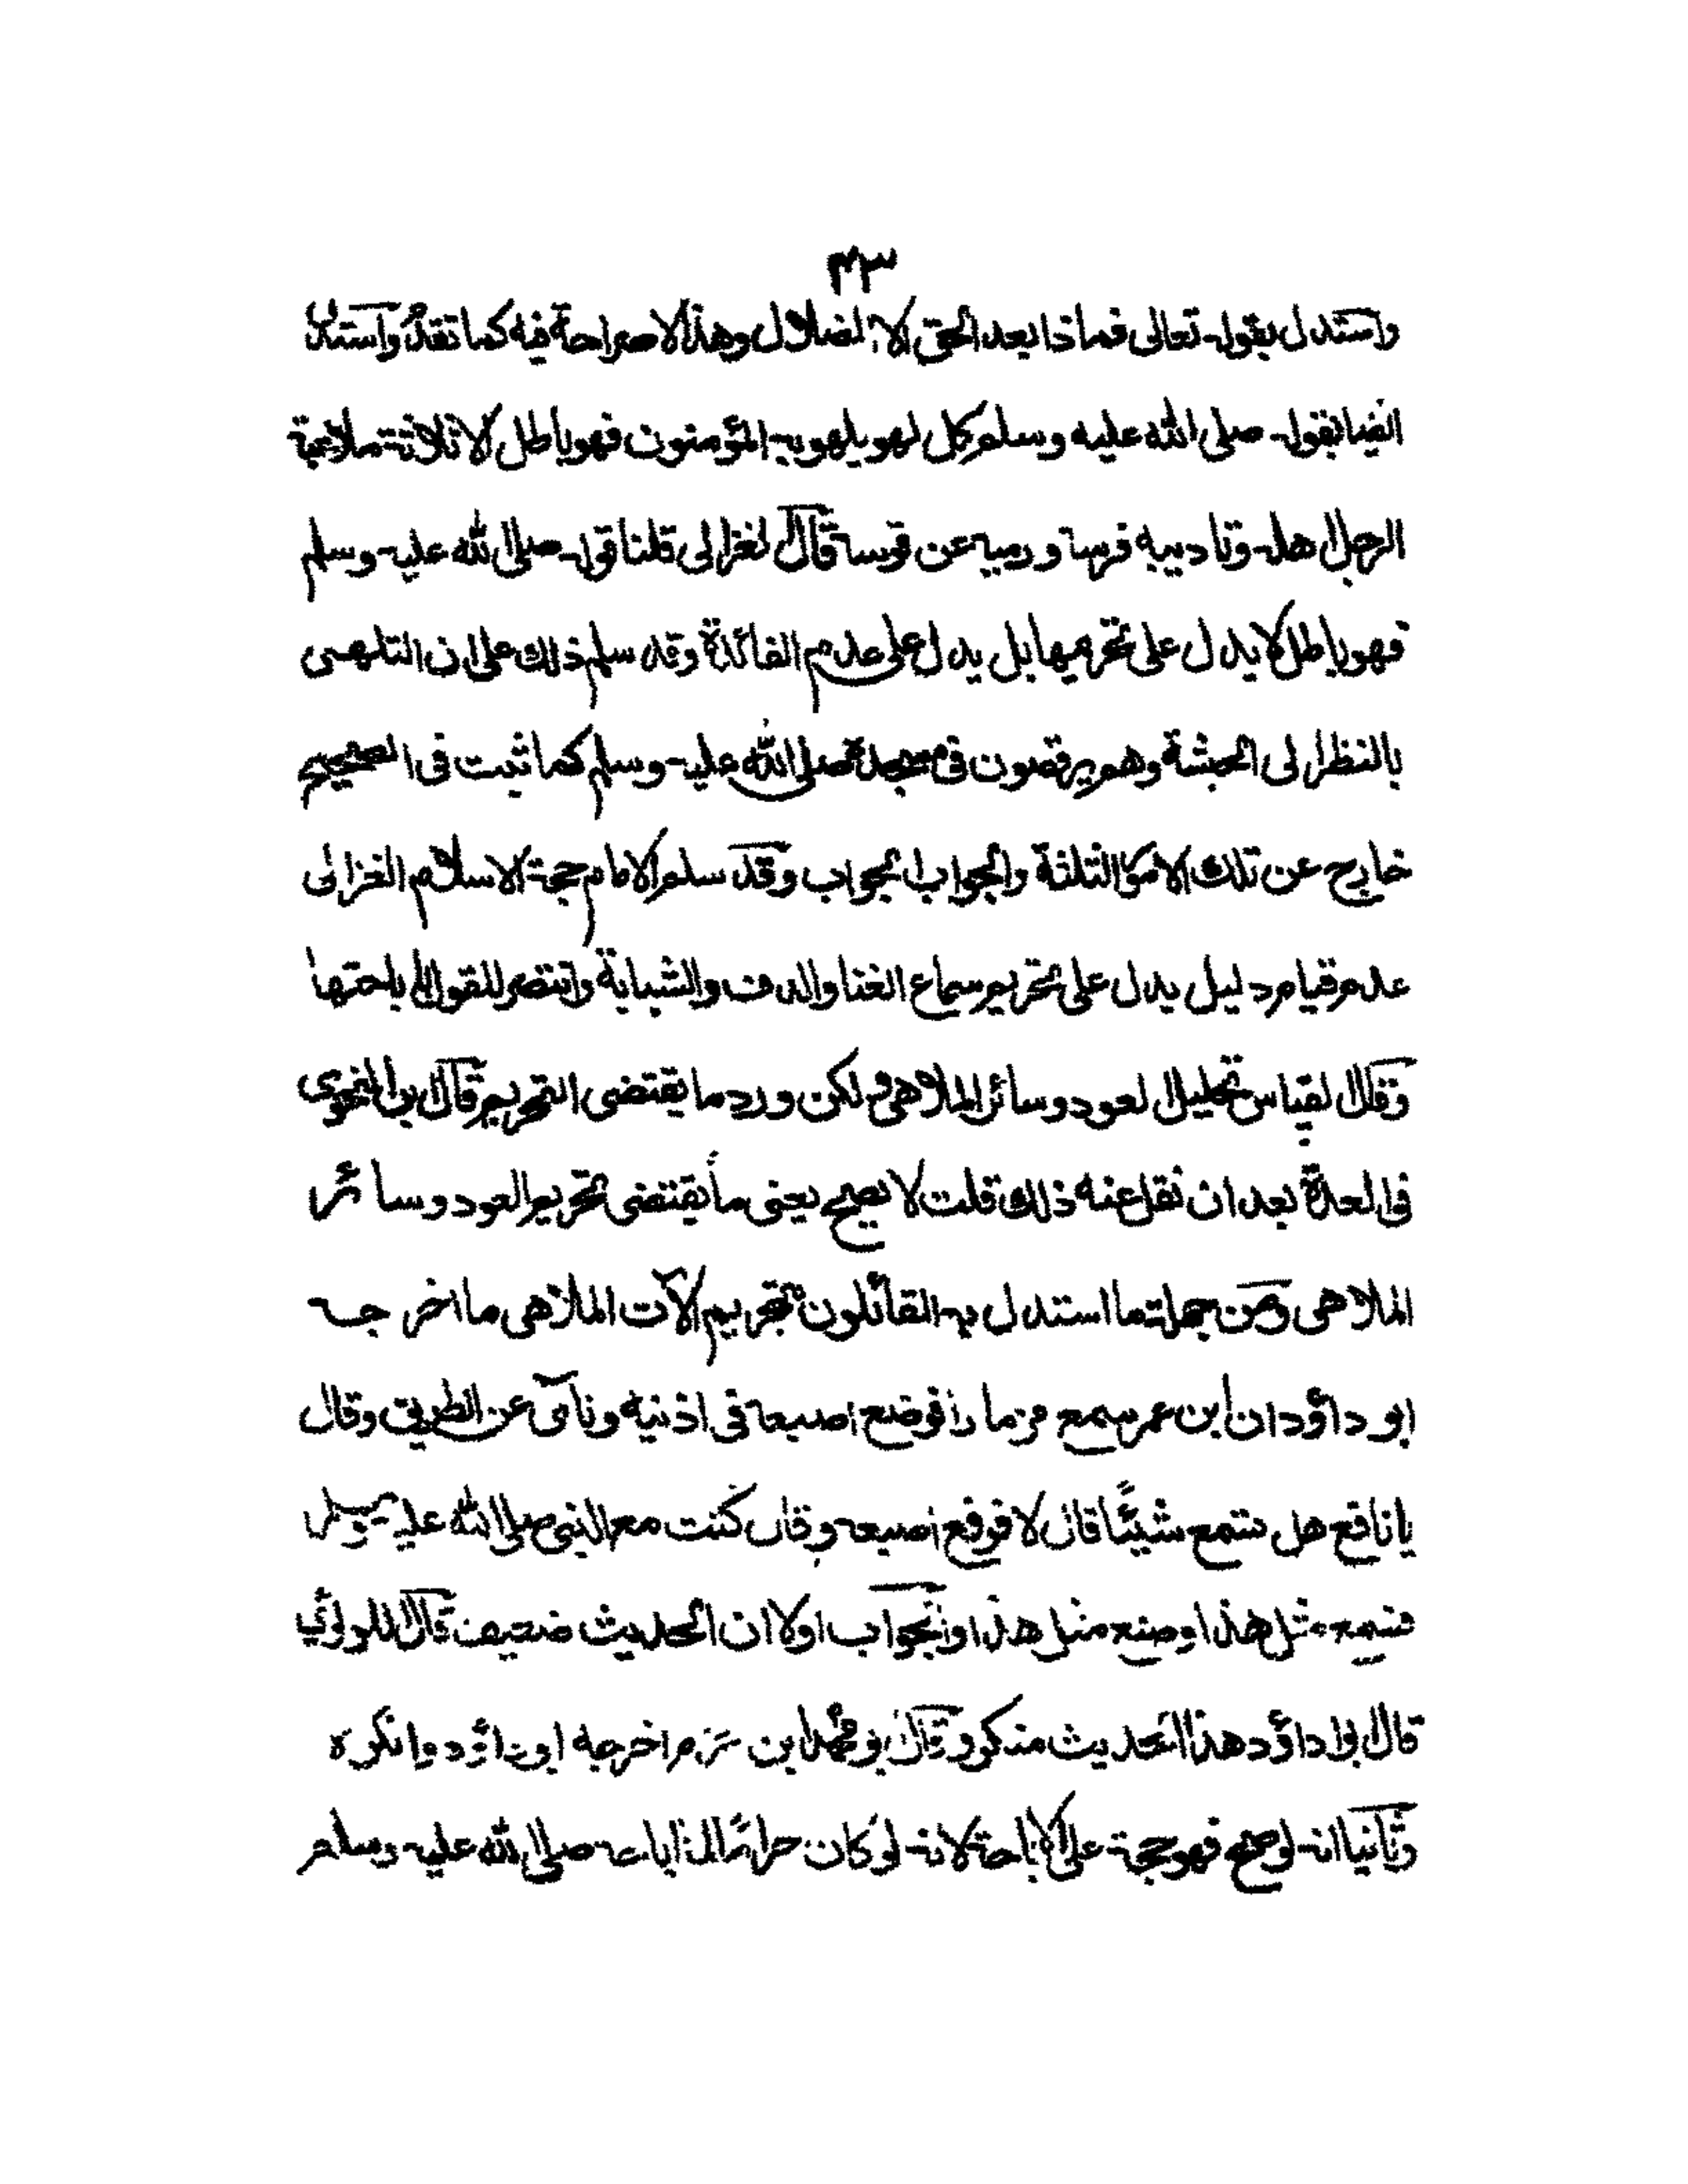 ٤٣
واستدل بقوله تعالى فماذا بعد الحق الا الضلال وهذا لا صراحة فيه كما تقدم واستدل
ايضا بقوله صلى الله عليه وسلم كل لهو يلهو به المؤمنون فهو باطل الا ثلاثة ملاعبة
الرجل اهله وتاديبه فرسه ورميه عن قوسه قال الغزالى قلنا قوله صلى الله عليه وسلم
فهو باطل لا يدل على تحريمها بل يدل على عدم الفائدة وقد سلم ذلك على ان التلهى
بالنظر الى الحبشة وهم يرقصون فى مسجده صلى الله عليه وسلم كما ثبت فى الصحيح
خارج عن تلك الامور الثلثة والجواب الجواب وقد سلم الامام حجة الاسلام الغزالى
عدم قيام دليل يدل على تحريم سماع الغنا والدف والشبابة وانتصر للقول باباحتها
وقال القياس تحليل العود وسائر الملاهى ولكن ورد ما يقتضى التحريم قال ابن النحوى
فى العمدة بعد ان نقل عنه ذلك قلت لا يصح يعنى ما يقتضى تحريم العود وسائر
الملاهى ومن جملة ما استدل به القائلون بتحريم الآت الملاهى ما اخرجه
ابو داؤد ان ابن عمر سمع مزمارا فوضع اصبعه فى اذنيه ونآى عن الطريق وقال
يا نافع هل تسمع شيئًا قال لا فرفع اصبعه وقال كنت مع النبى صلى الله عليه وسلم
فسمع مثل هذا وصنع مثل هذا والجواب اولا ان الحديث ضعيف قال اللولوئي
قال ابو داؤد هذا الحديث منكر وقال ابو محمد ابن حزم اخرجه ابو داؤد وانكره
وثانيا انه لو صح فهو حجة على الاباحة لانه لو كان حرامًا لما اباحه صلى الله عليه وسلم